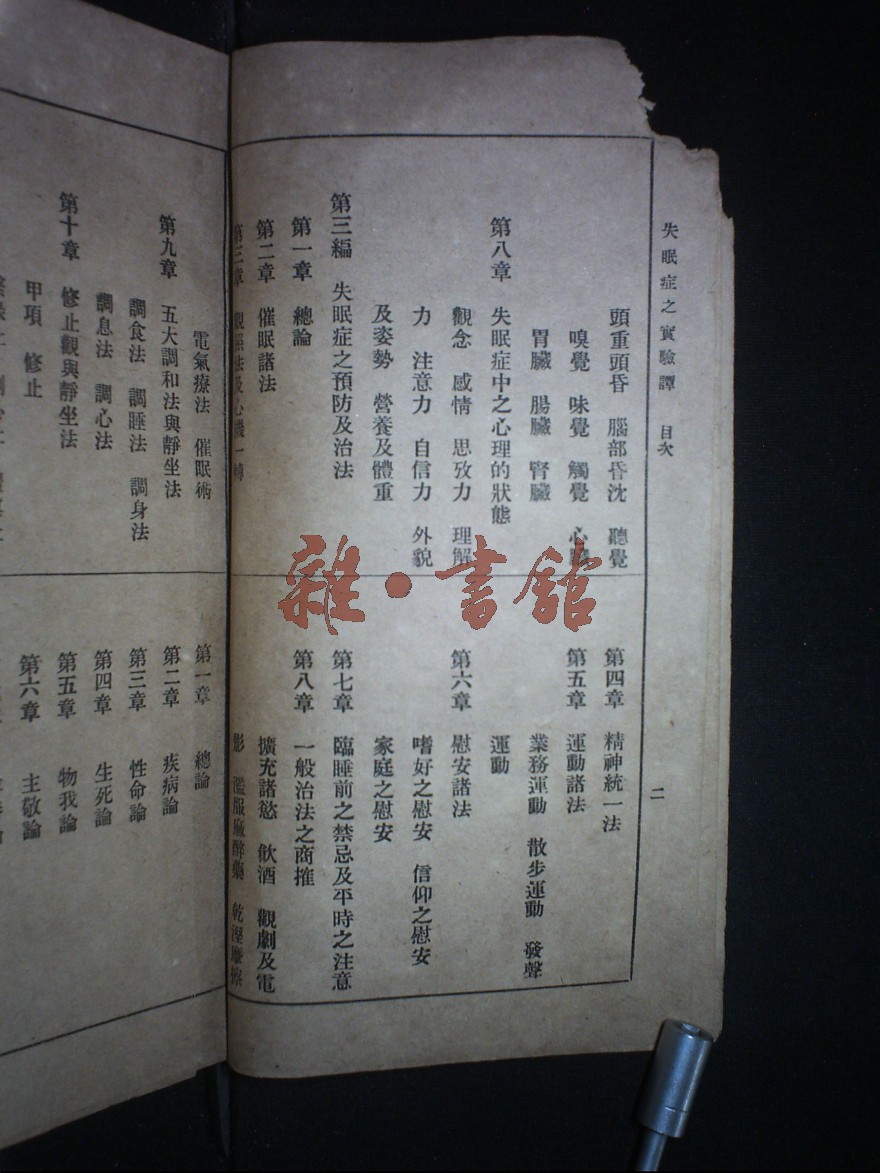 失眠症之實驗譚 目次
二
頭重頭昏 腦部昏沈 聽覺
嗅覺 味覺 觸覺 心臟
胃臟 腸臟 腎臟
第八章 失眠症中之心理的狀態
觀念 感情 思攷力 理解
力 注意力 自信力 外貌
及姿勢 營養及體重
第三編 失眠症之預防及治法
第一章 總論
第二章 催眠諸法
第三章 觀照法及心機一轉
第四章 精神統一法
第五章 運動諸法
業務運動 散步運動 發聲
運動
第六章 慰安諸法
嗜好之慰安 信仰之慰安
家庭之慰安
第七章 臨睡前之禁忌及平時之注意
第八章 一般治法之商搉
擴充諸慾 飲酒 觀劇及電
影 濫服麻醉藥 乾溼摩擦
電氣療法 催眠術
第九章 五大調和法與靜坐法
調食法 調睡法 調身法
調息法 調心法
第十章 修止觀與靜坐法
甲項 修止
第一章 總論
第二章 疾病論
第三章 性命論
第四章 生死論
第五章 物我論
第六章 主敬論
雜·書館